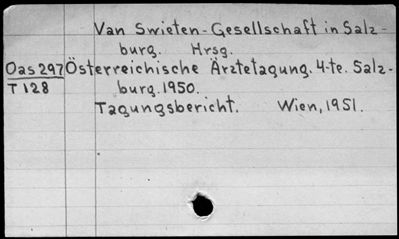 Van Swieten-Gesellschaft in Salz-
burg. Hrsg.
Oas297 Österreichische Ärztetagung. 4-te. Salz-
T128 burg.1950.
Tagungsbericht. Wien, 1951.